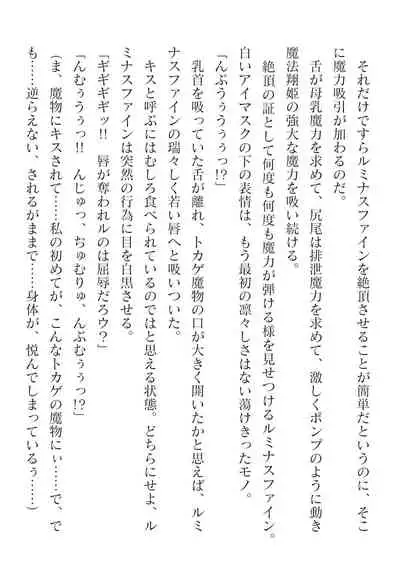 それだけですらルミナスファインを絶頂させることが簡単だというのに、そこ
に魔力吸引が加わるのだ。
舌が母乳魔力を求めて、尻尾は排泄魔力を求めて、激しくポンプのように動き
魔法翔姫の強大な魔力を吸い続ける。
絶頂の証として何度も何度も魔力が弾ける様を見せつけるルミナスファイン。
白いアイマスクの下の表情は、もう最初の凛々しさはない蕩けきったモノ。
「んぶぅうぅぅぅっ!?」
乳首を吸っていた舌が離れ、トカゲ魔物の口が大きく開いたかと思えば、ルミ
ナスファインの瑞々しく若い唇へと吸いついた。
キスと呼ぶにはむしろ食べられているのではと思える状態。どちらにせよ、ル
ミナスファインは突然の行為に目を白黒させる。
「ギギギギッ!　唇が奪われルのは屈辱だろウ?」
「んむぅうぅっ!!　んじゅっ、ぢゅむりゅ、んぶむぅぅっ!?」
(ま、魔物にキスされて……私の初めてが、こんなトカゲの魔物にぃ……で、で
も……逆らえない、されるがままで……身体が、悦んでしまっているぅ……)